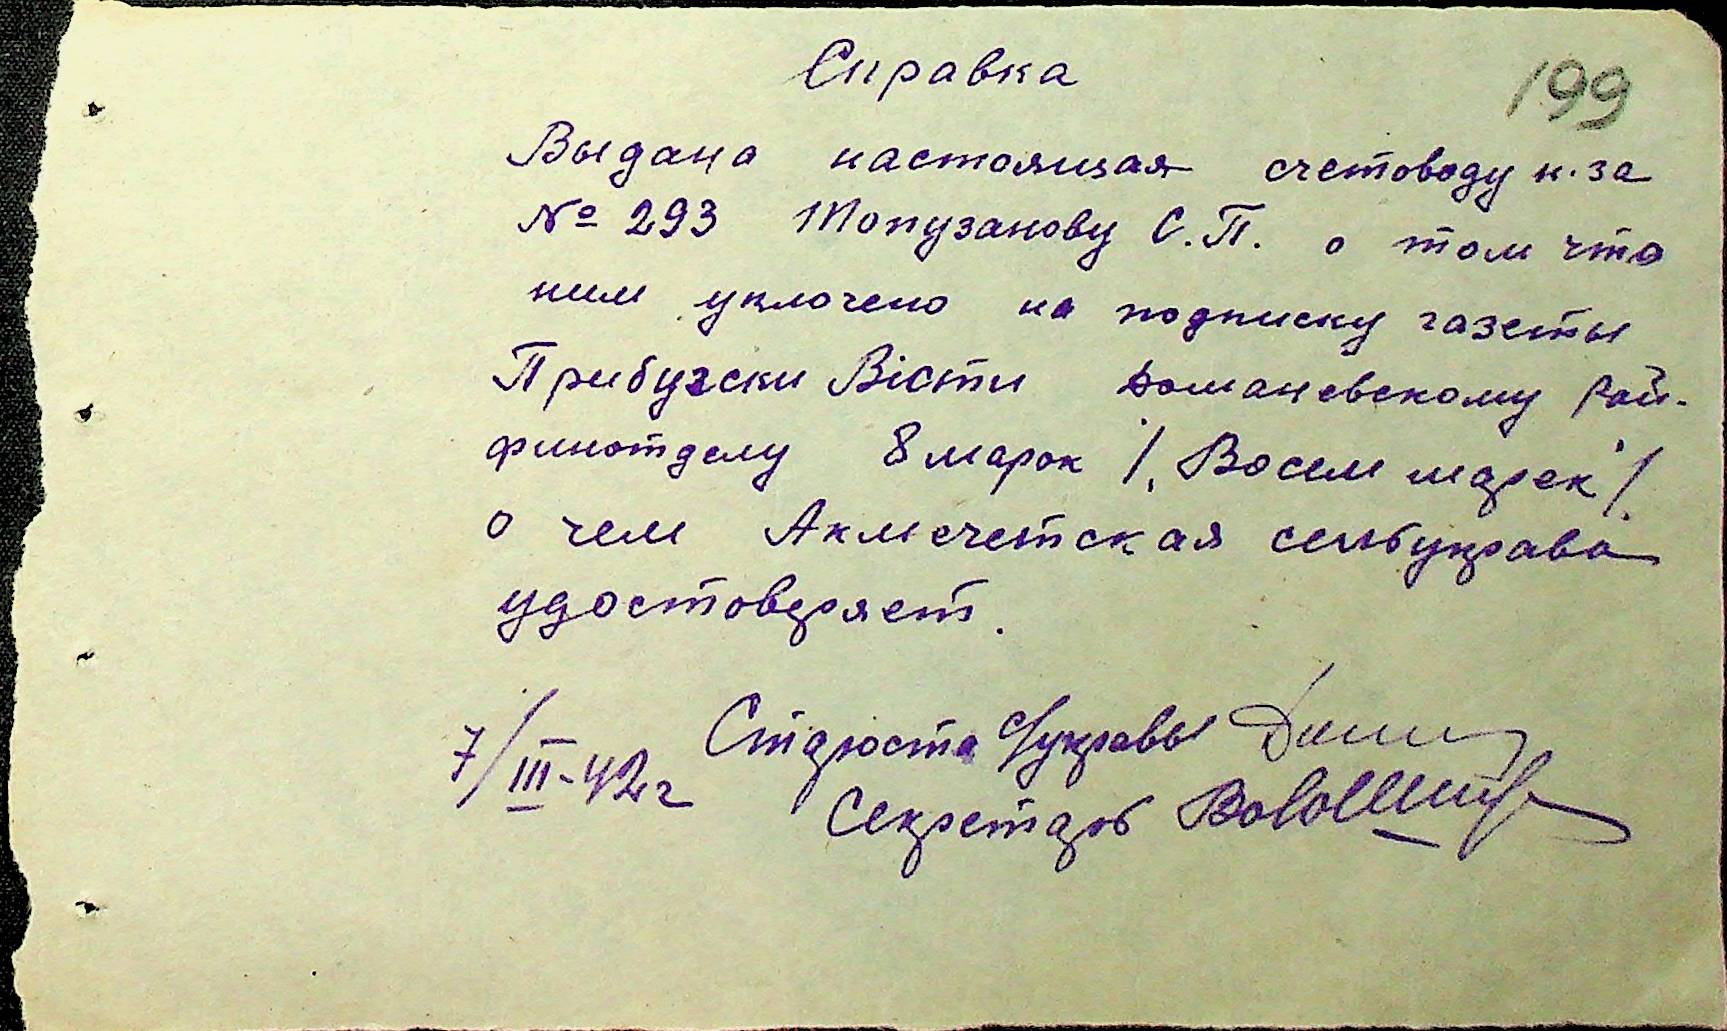 Справка
199
Выдана настоящая счетоводу к-за
№ 293 Топузанову С.П. о том что
ним уклочено на подписку газеты
Прибузски Вісти Доманевскому Рай-
финотделу 8 марок /Восем марек/.
о чем Акмечетская сельбуправа
удостоверяет.
7/III-42г Стдроста С/управы
Секретарь